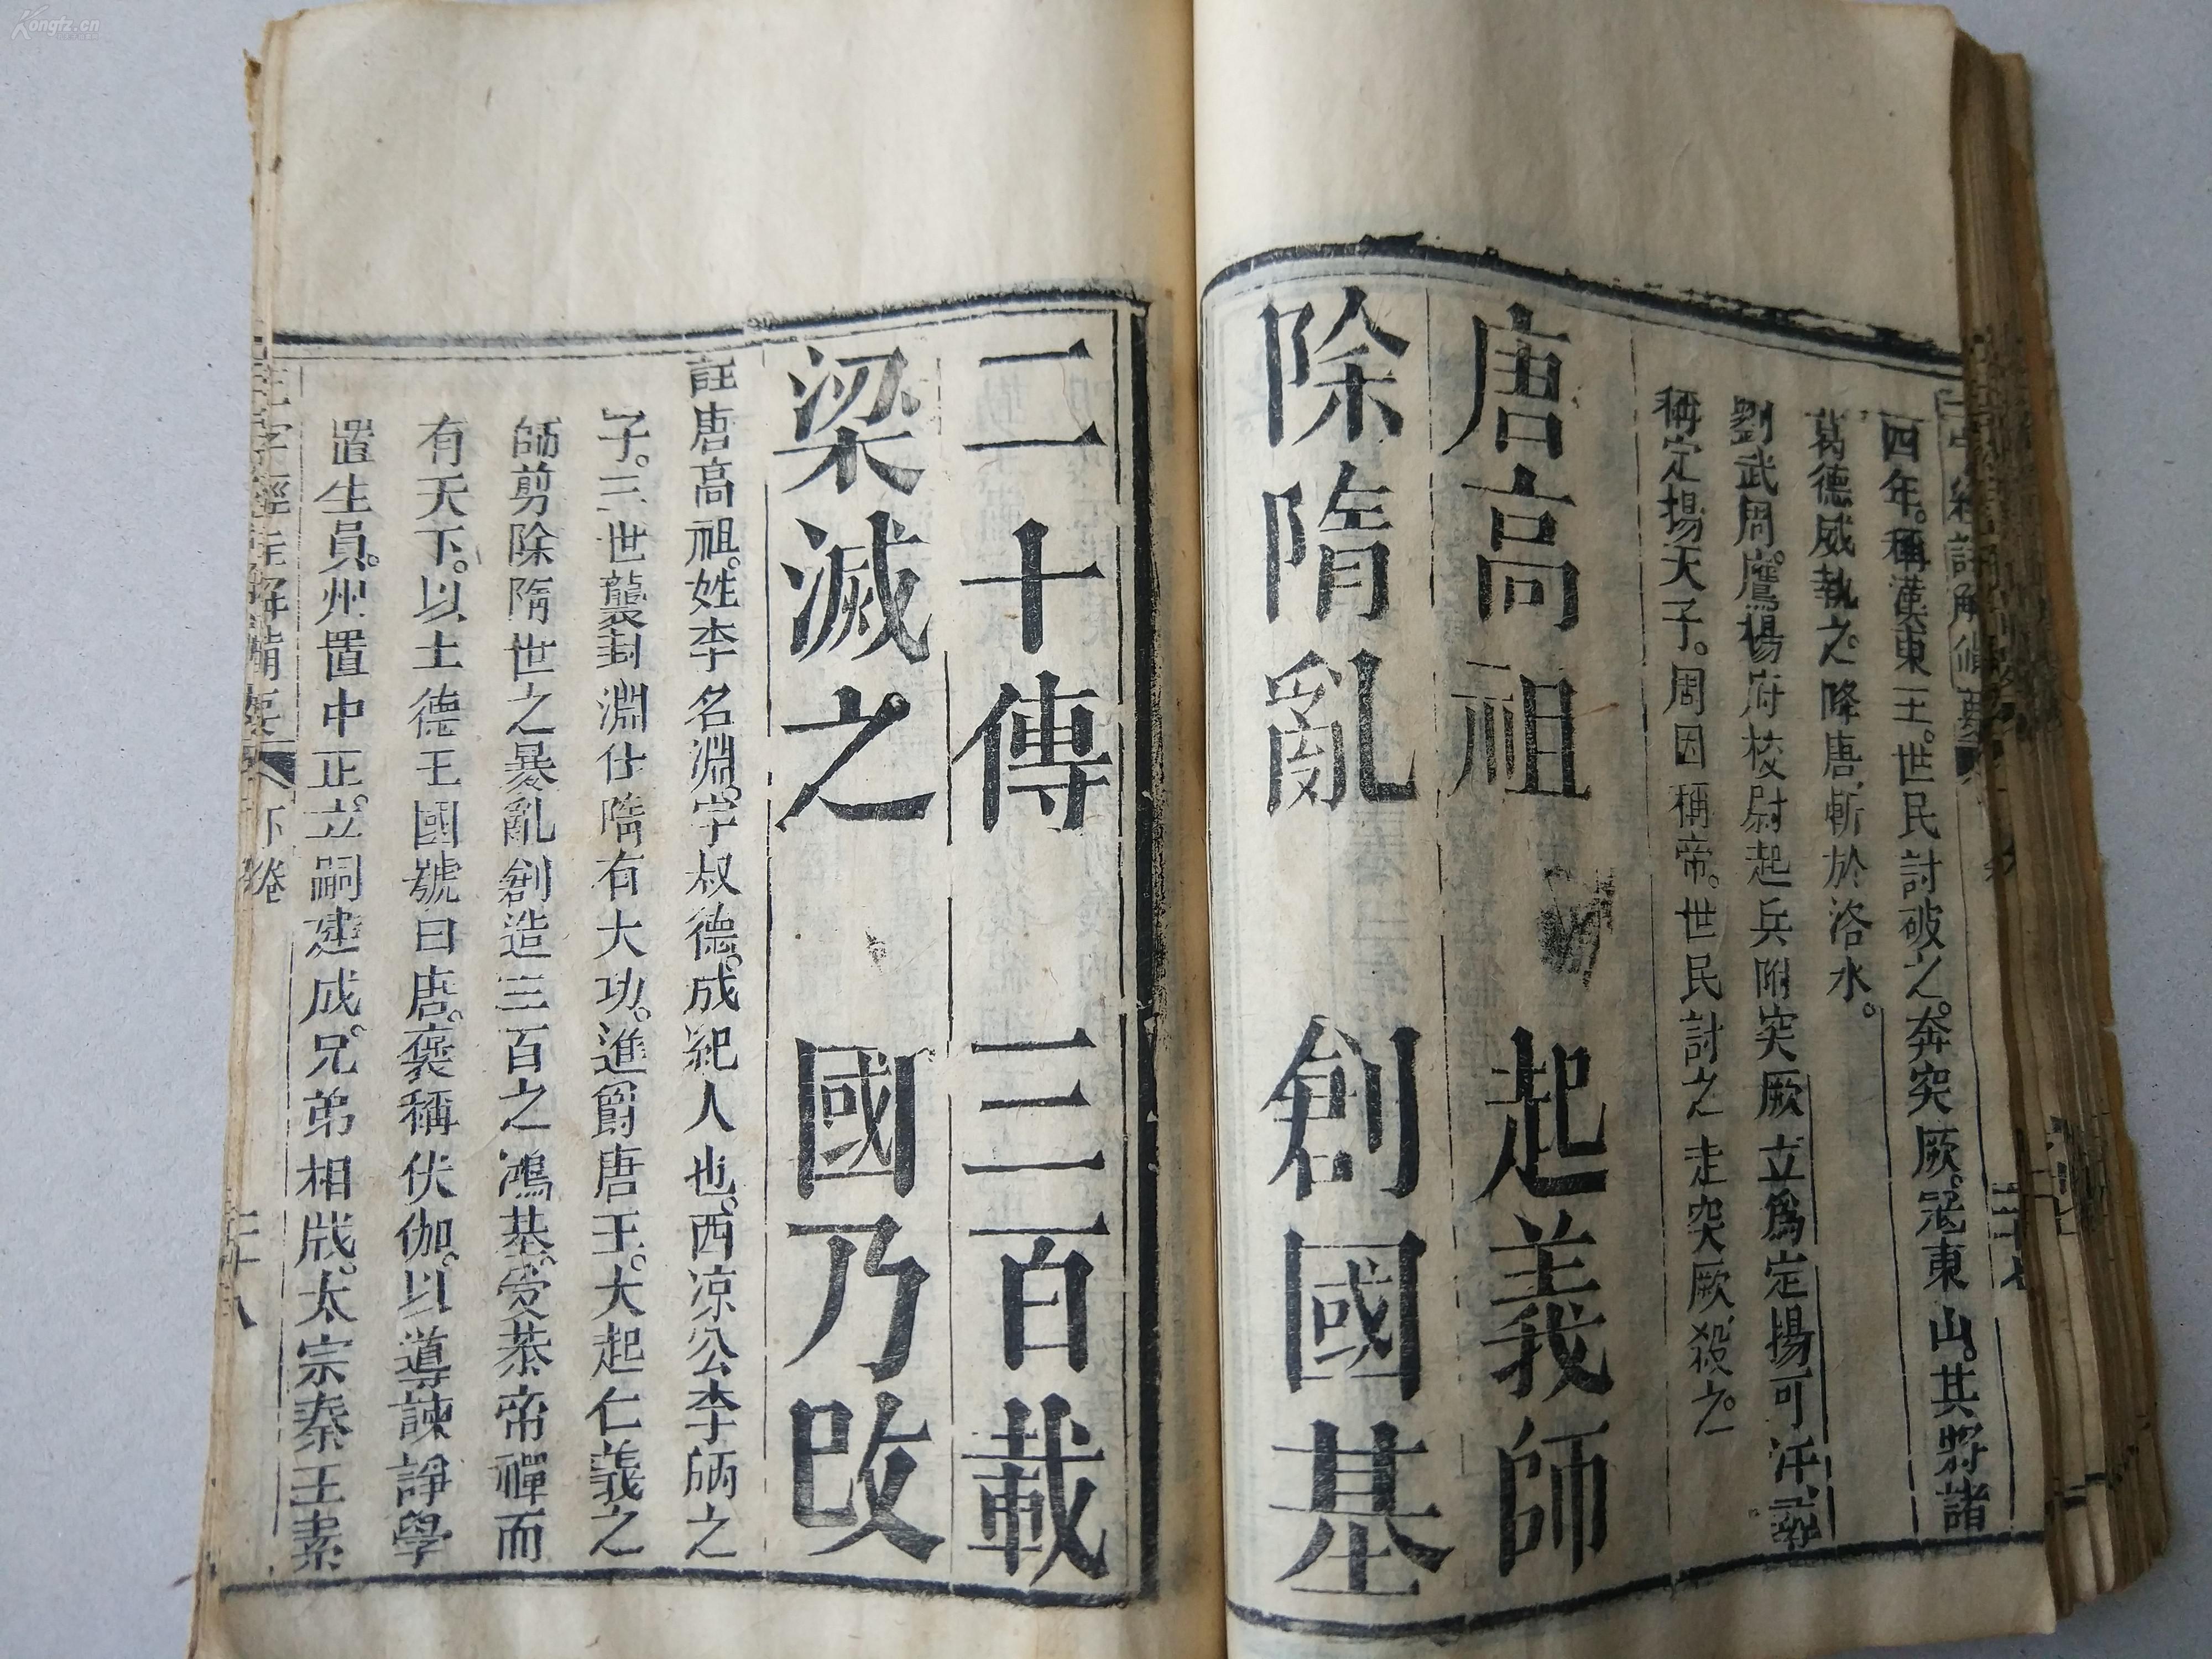 四年。稱漢東王。世民討破之。奔突厥。冦東山。其將諸
葛德威執之。降唐。斬於洛水。
劉武周。鷹揚府校尉起兵附突厥立爲定揚可汗
稱定揚天子。周因稱帝。世民討之走突厥殺之。
唐高祖 起義師
除隋亂 創國基
二十傳 三百載
梁滅之 國乃改
註唐高祖。姓李名淵。字叔德。成紀人也。西凉公李昞之
子。三世襲封淵仕隋有大功。進爵唐王。大起仁義之
師剪除隋世之暴亂創造三百之鴻基。受恭帝禪而
有天下。以土德王國號曰唐。褒稱伏伽。以導諫諍學
置生員。州置中正。立嗣建成。兄弟相戕。太宗秦王素
三字經註解備要
下卷
二十八
Kongfz.cn